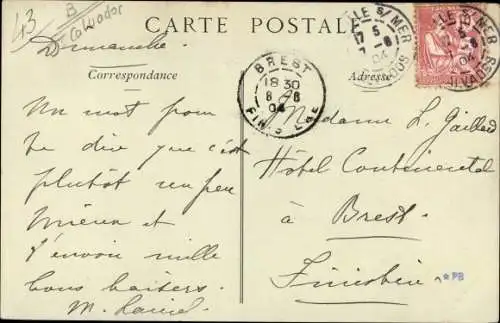 43
B
Calvados
CARTE POSTALE
Dimanche
Correspondance
Adresse
Un mot pour
te dire que c'est
plutôt un peu
mieux et
t'envoie mille
bons baisers.
BREST
18 30
8 - 8
04
FINISTERE
LLE S/ MER
17 5
7 - 8
04
CALVADOS
LLE S/ MER
5
- 8
04
CALVADOS
Madame L. Gaillard
Hôtel Continental
à
Brest
Finistère
*PB